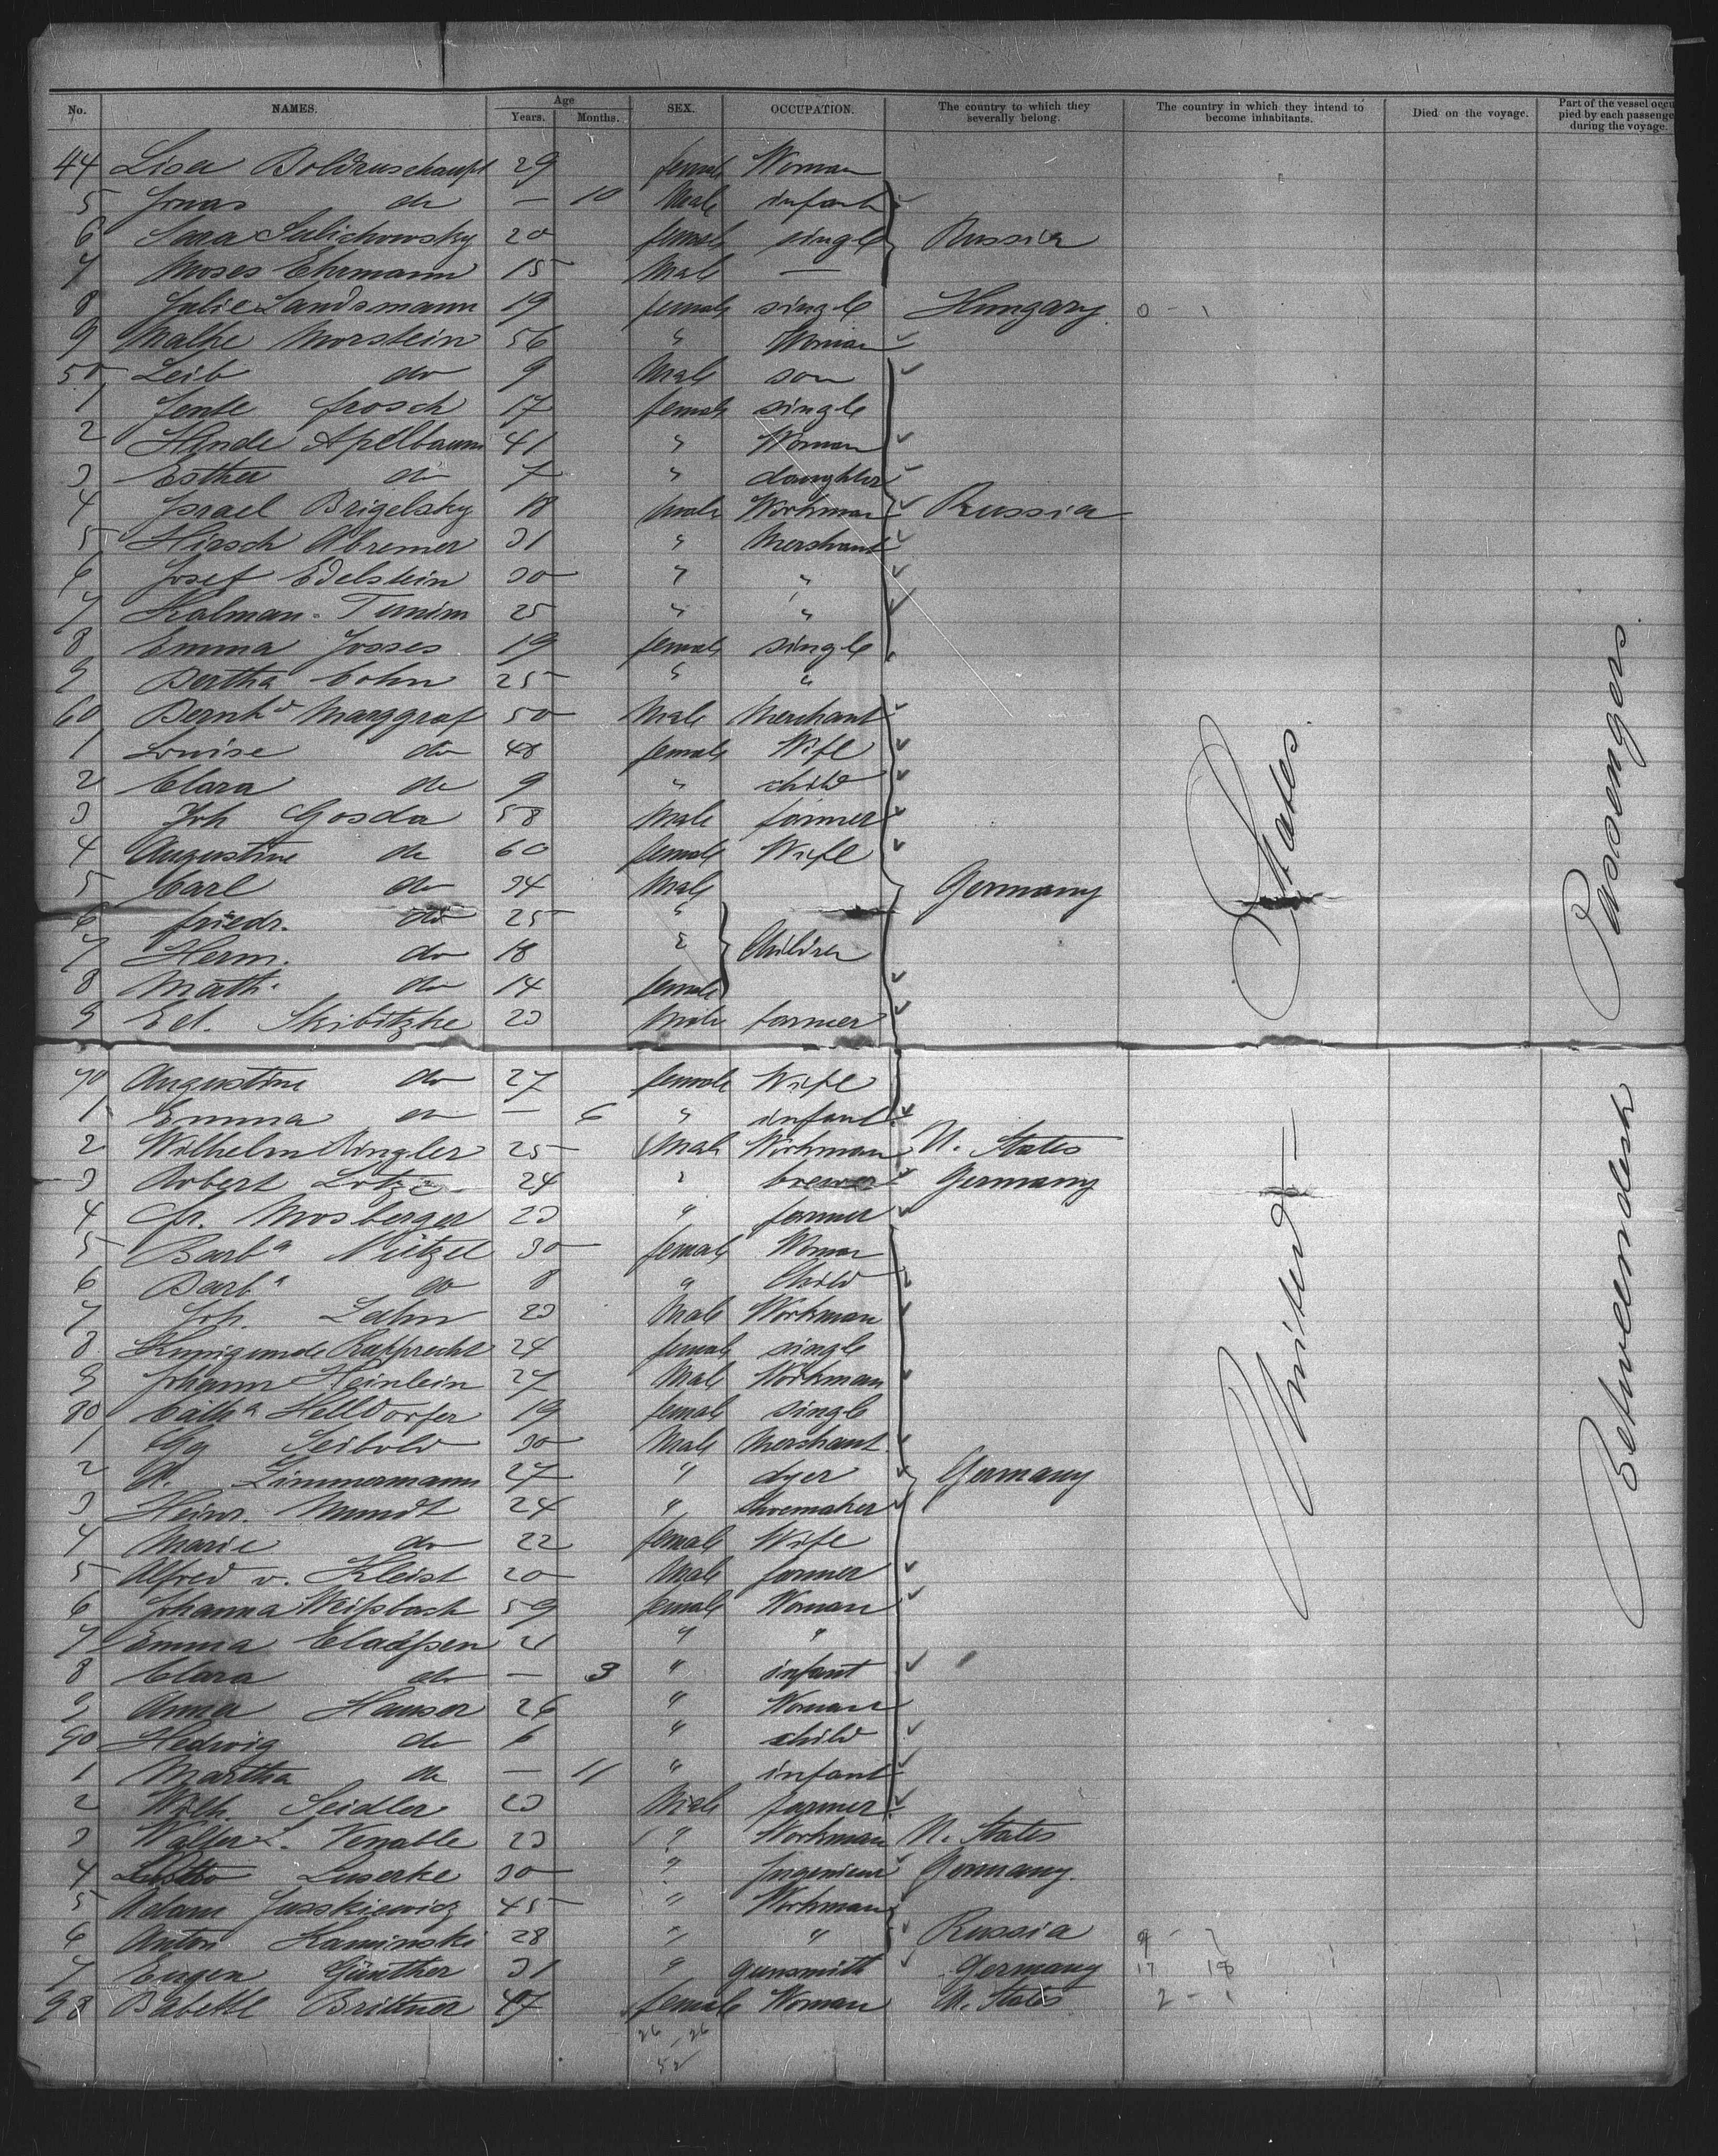 No. NAMES. Age Years. Months. SEX. OCCUPATION. The country to which they severally belong. The country in which they intend to become inhabitants. Died on the voyage. Part of the vessel occupied by each passenger during the voyage.
44 Lisa 29 female Woman
5 Jonas do — 10 Male infant
6 Sara Sulichowsky 20 female single Russia
7 Moses Ehrmann 15 Male —
8 Julie Landsmann 19 female single Hungary 0 - 1
9 Malke Morstein 56 " Woman
50 Leib do 9 Male son
1 Jente Frosch 17 female single
2 Hinde Apelbaum 41 " Woman
3 Esther do 7 " daughter
4 Israel Brigelsky 18 Male Workman Russia
5 Hirsch Abremer 31 " Merchant
6 Josef Edelstein 30 " "
7 Kalman Tunim 25 " "
8 Emma Josses 19 female single
9 Bertha Cohn 25 " "
60 Bernhd Marggraf 50 Male Merchant
1 Louise do 48 female Wife
2 Clara do 9 " child
3 Joh Gosda 58 Male farmer
4 Augustine do 60 female Wife
5 Carl do 34 Male Germany
6 friedr. do 25 "
7 Herm. do 18 " Children
8 Math. do 14 female
9 Ed. Skibitzke 23 Male farmer
70 Augustine do 27 female Wife
1 Emma do — 6 " infant
2 Wilhelm Ringler 25 Male Workman U. States
3 Robert Lotze 24 " brewer Germany
4 Fr. Mosberger 23 " farmer
5 Barba Nützel 30 female Woman
6 Barba do 8 " Child
7 Joh. Lahm 23 Male Workman
8 Kunigunde Rupprecht 24 female single
9 Johann Heinlein 27 Male Workman
80 Catha Helldorfer 19 female single
1 Gg Seibold 30 Male Merchant
2 A. Zimmermann 27 " dyer Germany
3 Heinr. Mundt 24 " Shoemaker
4 Marie do 22 female Wife
5 Alfred v. Kleist 20 Male farmer
6 Johanna Weißbach 59 female Woman
7 Emma Claaßen 21 " "
8 Clara do — 3 " infant
9 Anna Hauser 26 " Woman
90 Hedwig do 6 " child
1 Martha do — 11 " infant
2 Wilh. Seidler 23 Male farmer
3 Walter L. Venable 23 " Workman U. States
4 Luserke 30 " Ingenieur Germany.
5 Adam Jusskiewicz 45 " Workman
6 Anton Kaminski 28 " " Russia 9 - 7
7 Eugen Günther 31 " gunsmith Germany 17 18
98 Babette Brittner 47 female Woman U. States 2 -
26 26
52
United States.
Betweendesk Passengers.